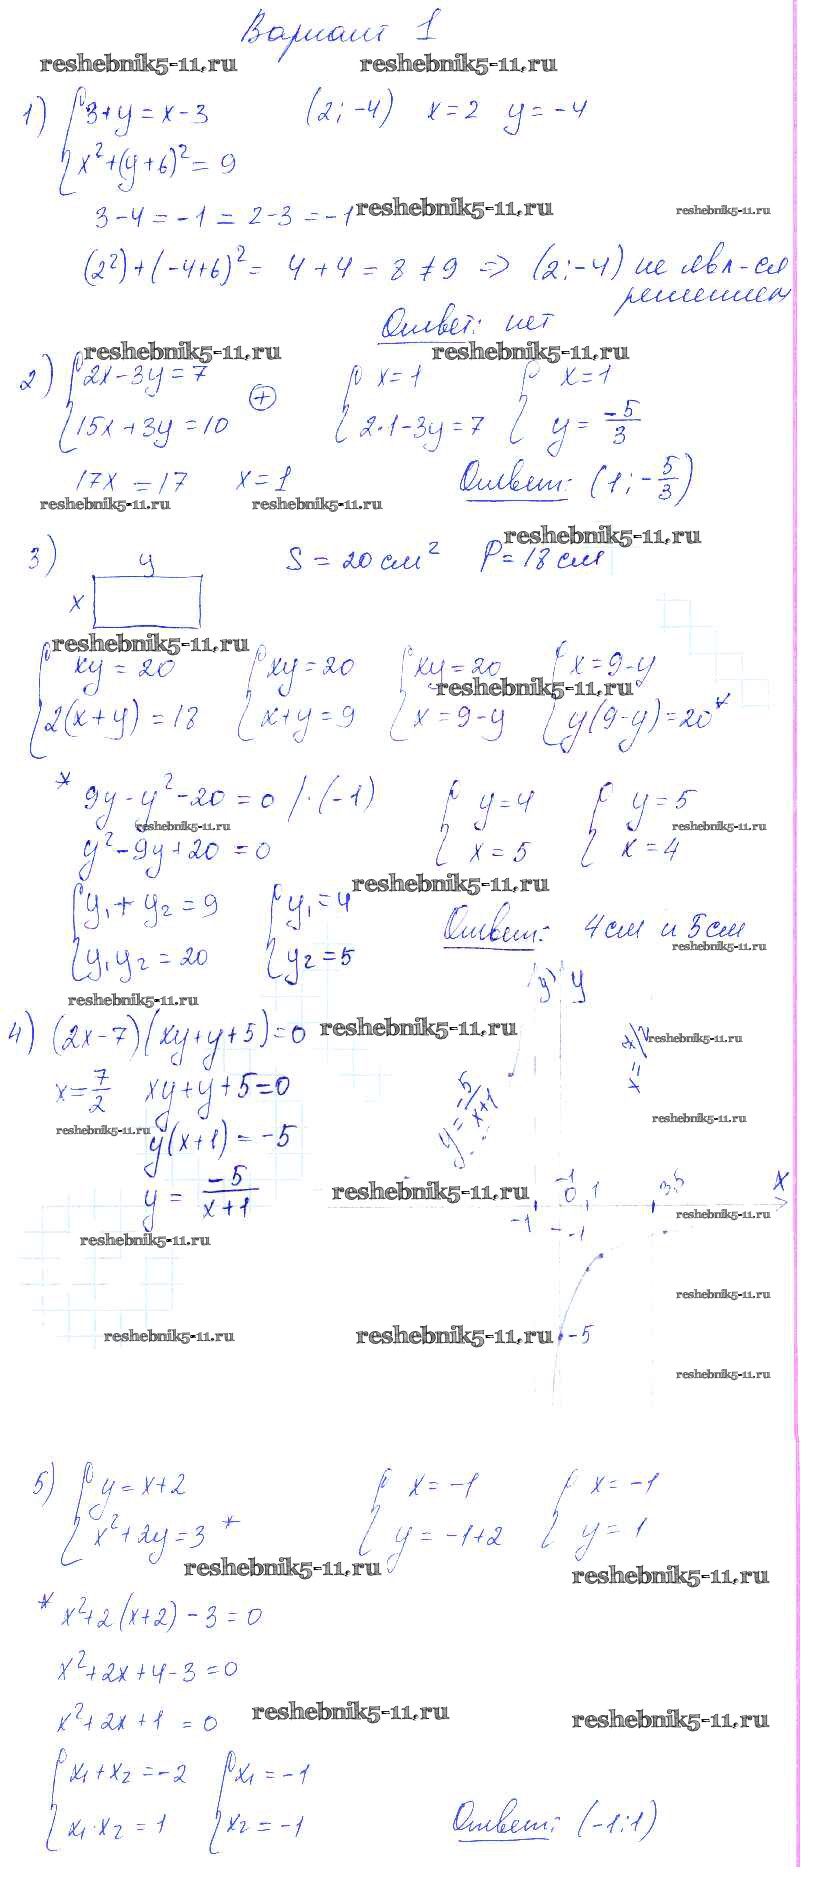 Вариант 1
reshebnik5-11.ru reshebnik5-11.ru
1) { 3+y = x-3 (2; -4) x=2 y=-4
x²+(y+6)² = 9
3-4 = -1 = 2-3 = -1 reshebnik5-11.ru reshebnik5-11.ru
(2²)+(-4+6)² = 4+4 = 8 ≠ 9 => (2;-4) не явл-ся
решением
Ответ: нет
reshebnik5-11.ru reshebnik5-11.ru
2) { 2x-3y=7 ⊕ { x=1 { x=1
15x+3y=10 2·1-3y=7 y = -5/3
17x = 17 x=1 Ответ: (1; -5/3)
reshebnik5-11.ru reshebnik5-11.ru
reshebnik5-11.ru
3) y S = 20 см² P=18 см
x
reshebnik5-11.ru
{ xy = 20 { xy=20 { xy=20 { x=9-y
reshebnik5-11.ru
2(x+y) = 18 x+y=9 x=9-y y(9-y)=20*
* 9y-y²-20=0 /·(-1) { y=4 { y=5
reshebnik5-11.ru reshebnik5-11.ru
y²-9y+20=0 x=5 x=4
reshebnik5-11.ru
{ y₁+y₂=9 { y₁=4 Ответ: 4см и 5см
y₁y₂=20 y₂=5
reshebnik5-11.ru
reshebnik5-11.ru
y) y
4) (2x-7)(xy+y+5)=0 reshebnik5-11.ru reshebnik5-11.ru
x=7/2 xy+y+5=0 y=-5/x+1 x=7/2
reshebnik5-11.ru reshebnik5-11.ru
y(x+1)=-5
y = -5/x+1 reshebnik5-11.ru -1 0 1 3,5 x
-1 -1 reshebnik5-11.ru
reshebnik5-11.ru
reshebnik5-11.ru
reshebnik5-11.ru reshebnik5-11.ru -5
reshebnik5-11.ru
5) { y=x+2 { x=-1 { x=-1
x²+2y=3 * y=-1+2 y=1
reshebnik5-11.ru reshebnik5-11.ru
* x²+2(x+2)-3=0
x²+2x+4-3=0
x²+2x+1=0 reshebnik5-11.ru reshebnik5-11.ru
{ x₁+x₂=-2 { x₁=-1
x₁·x₂=1 x₂=-1 Ответ: (-1;1)